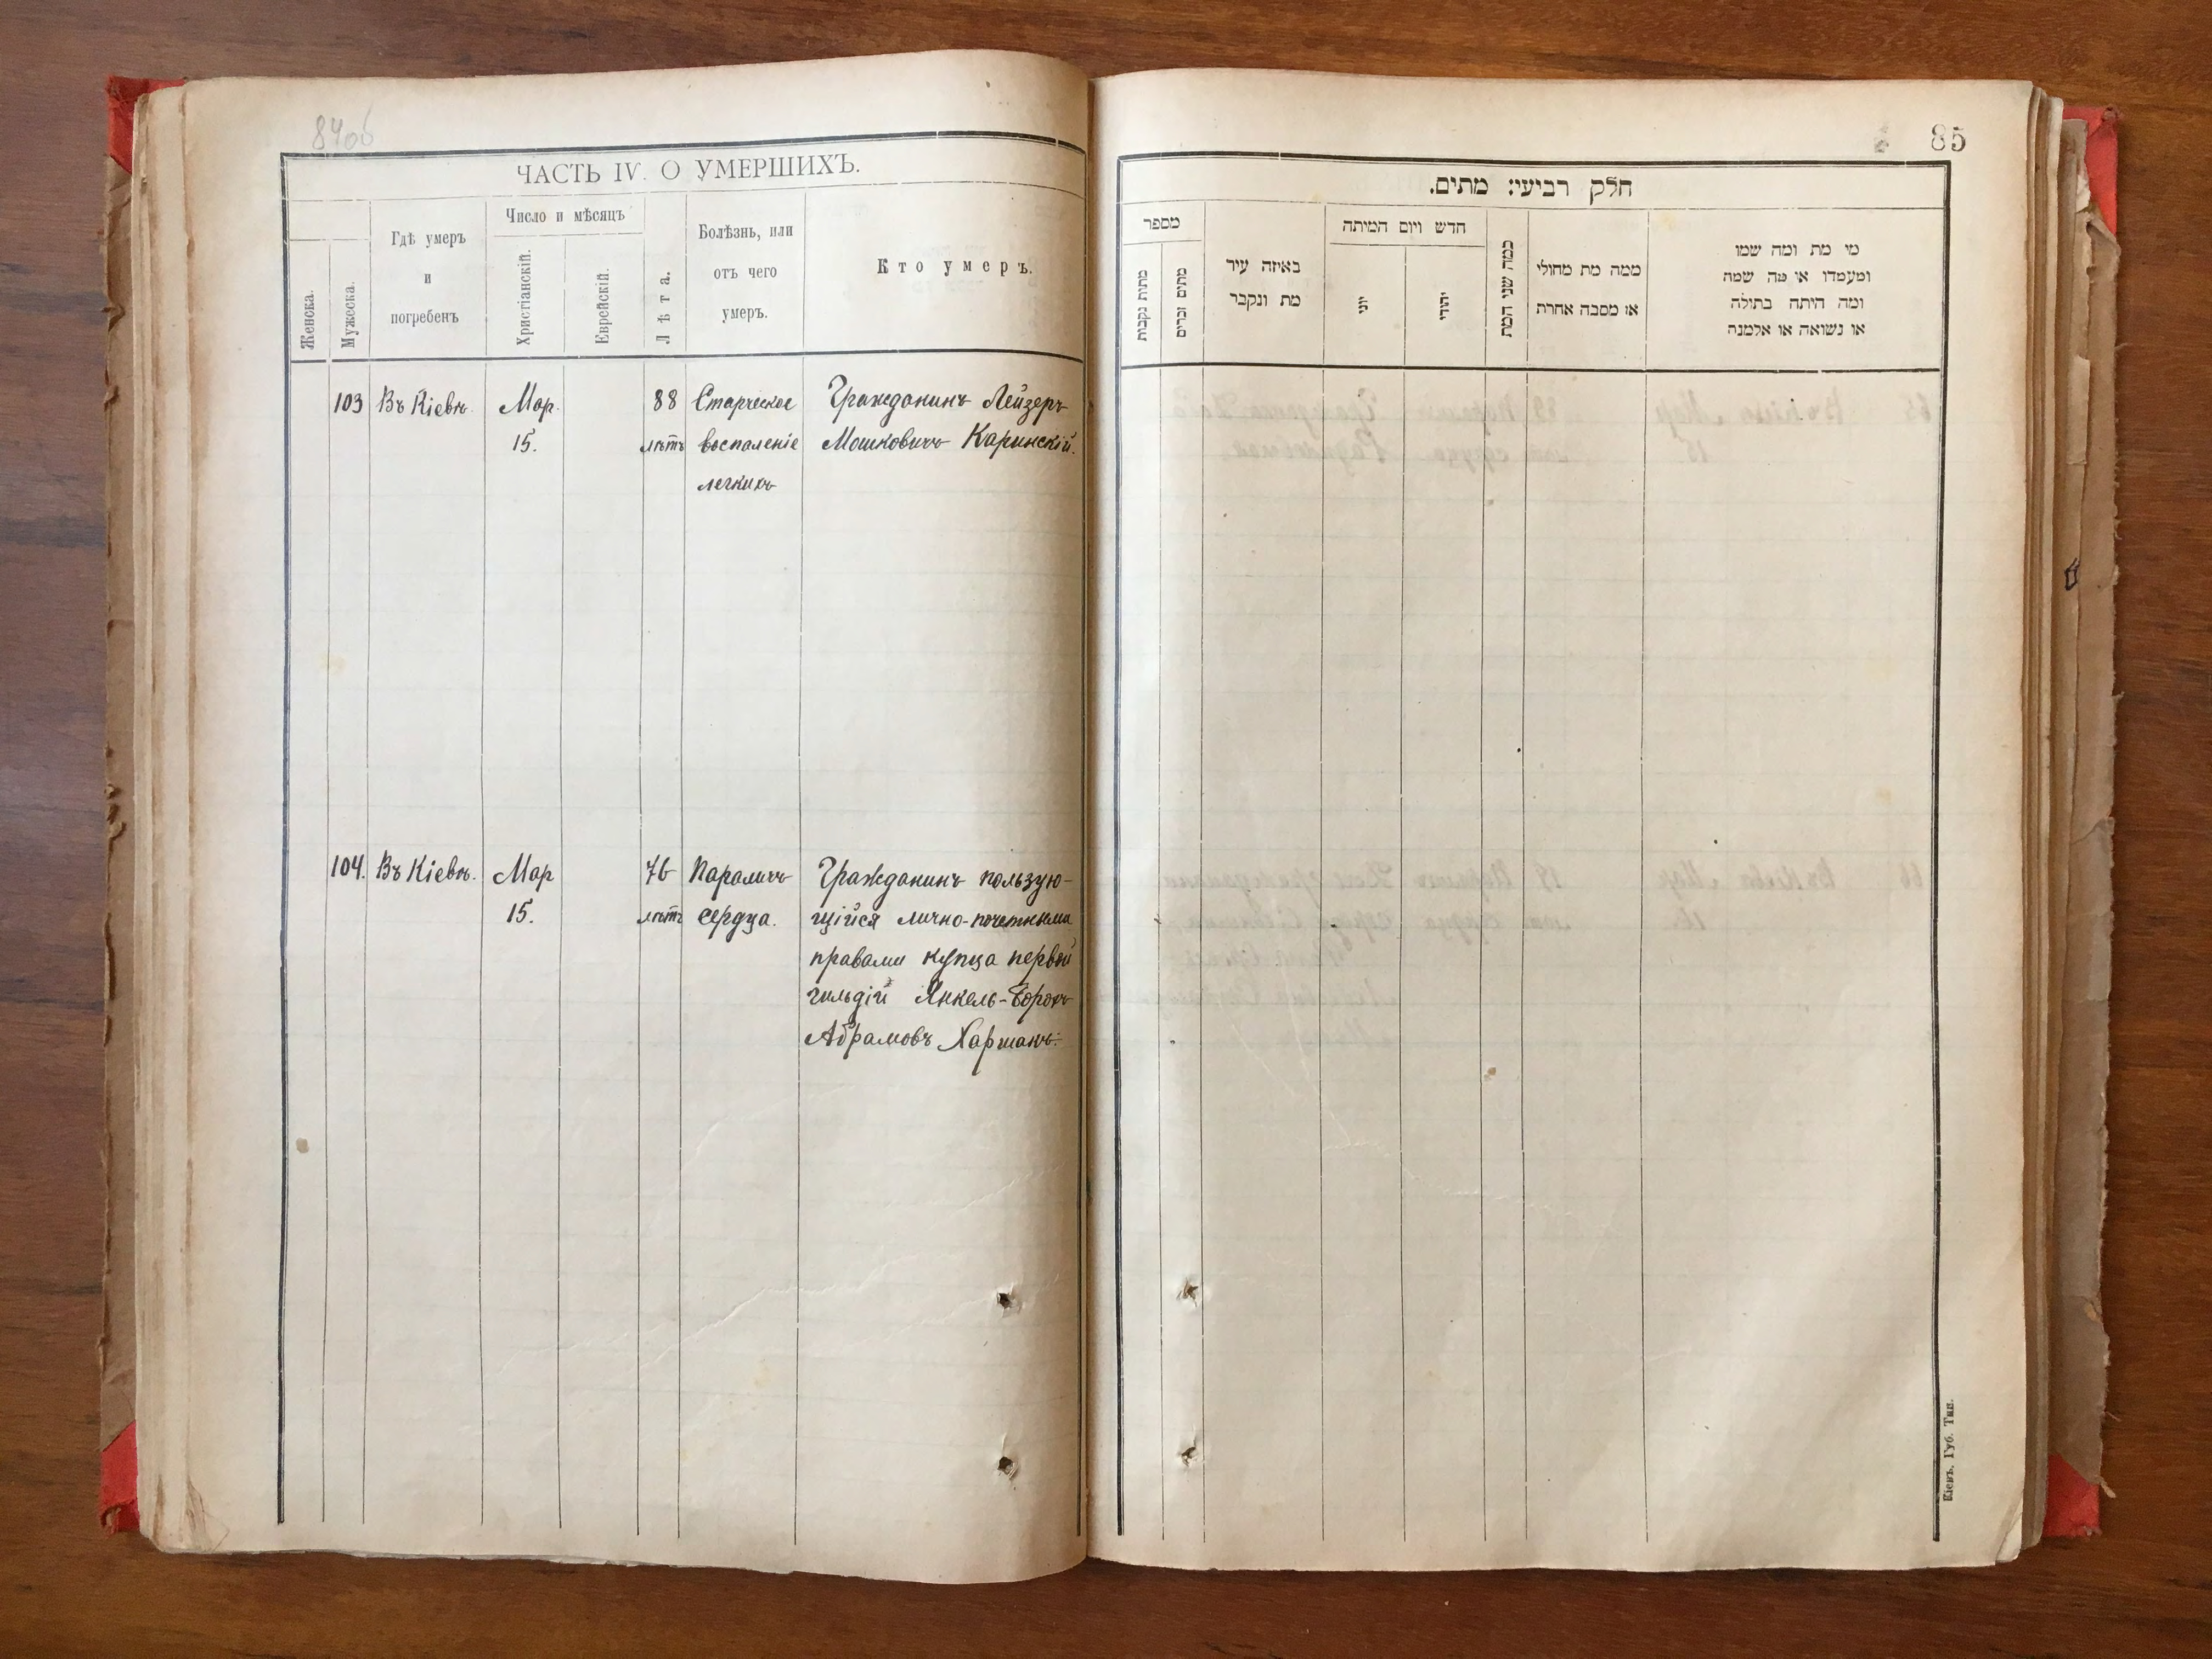 84об
ЧАСТЬ IV. О УМЕРШИХЪ.
Женска.
Мужеска.
Гдѣ умеръ
и
погребенъ
Число и мѣсяцъ
Христіанскій.
Еврейскій.
Лѣта.
Болѣзнь, или
отъ чего
умеръ.
Кто умеръ.
103 Въ Кіевѣ. Мар. 88 Старческое Гражданинъ Лейзеръ
15. лѣтъ воспаленіе Мошковичъ Каринскій.
легкихъ
104. Въ Кіевѣ. Мар 76 Параличъ Гражданинъ пользую-
15. лѣтъ сердца. щійся лично-почетными
правами купца первой
гильдіи Янкель-Борохъ
Абрамовъ Харманъ.
85
חלק רביעי: מתים.
מספר
מתות נקבות
מתים זכרים
באיזה עיר
מת ונקבר
חדש ויום המיתה
יוני
יהודי
כמה שני המת
ממה מת מחולי
או מסבה אחרת
מי מת ומה שמו
ומעמדו או מה שמה
ומה היתה בתולה
או נשואה או אלמנה
Кіевъ. Губ. Тип.